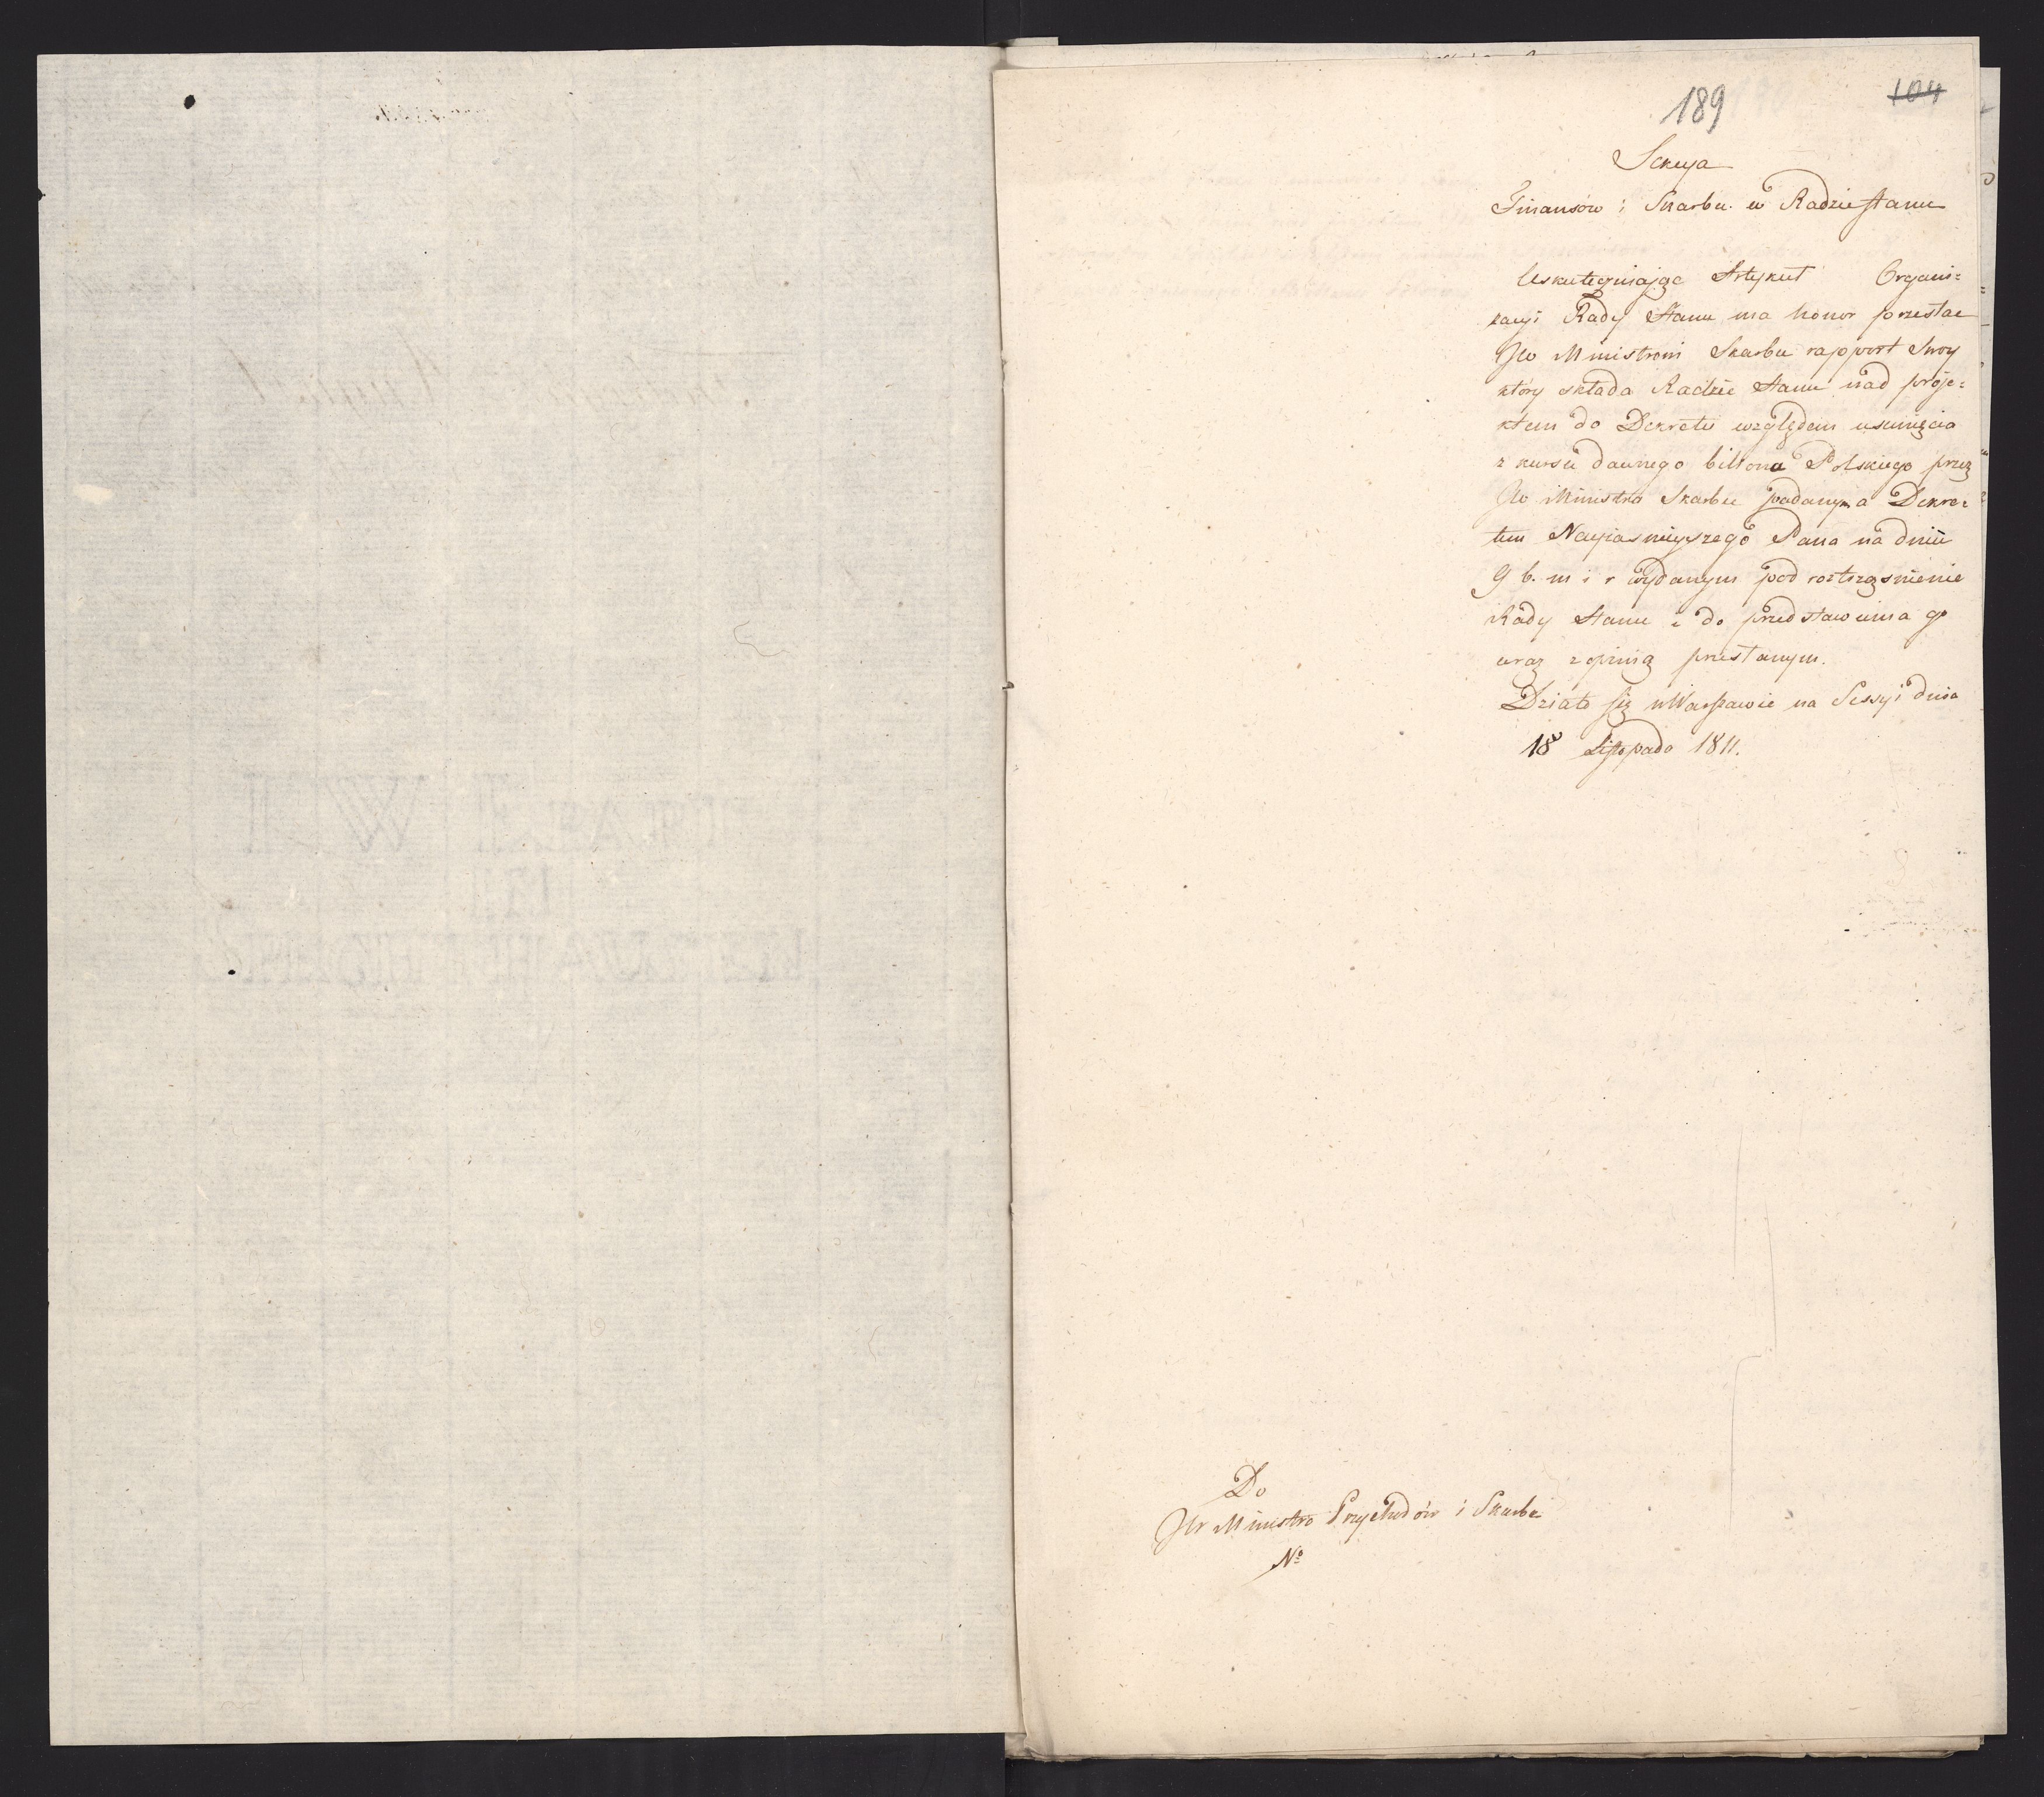 189
104
Sekcya
Finansów i Skarbu w Radzie Stanu
Uskuteczniając Artykuł Organi=
zacyi Rady Stanu ma honor przesłać
JW Ministrowi Skarbu rapport swoy
który składa Radzie Stanu nad proje=
ktem do Dekretu względem usunięcia
z kursu dawnego billonu Polskiego przez
JW Ministra Skarbu podanym a Dekre=
tem Nayiaśnieyszego Pana na dniu
9 b. m i r wydanym pod roztrząśnienie
Rady Stanu i do przedstawienia go
wraz z opinią przesłanym.
Działo się w Warszawie na Sessyi dnia
18 Listopada 1811.
Do
JW Ministra Przychodów i Skarbu
No